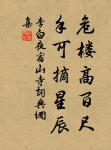 危楼高百尺
手可摘星辰
李白夜宿山寺詞典網
集